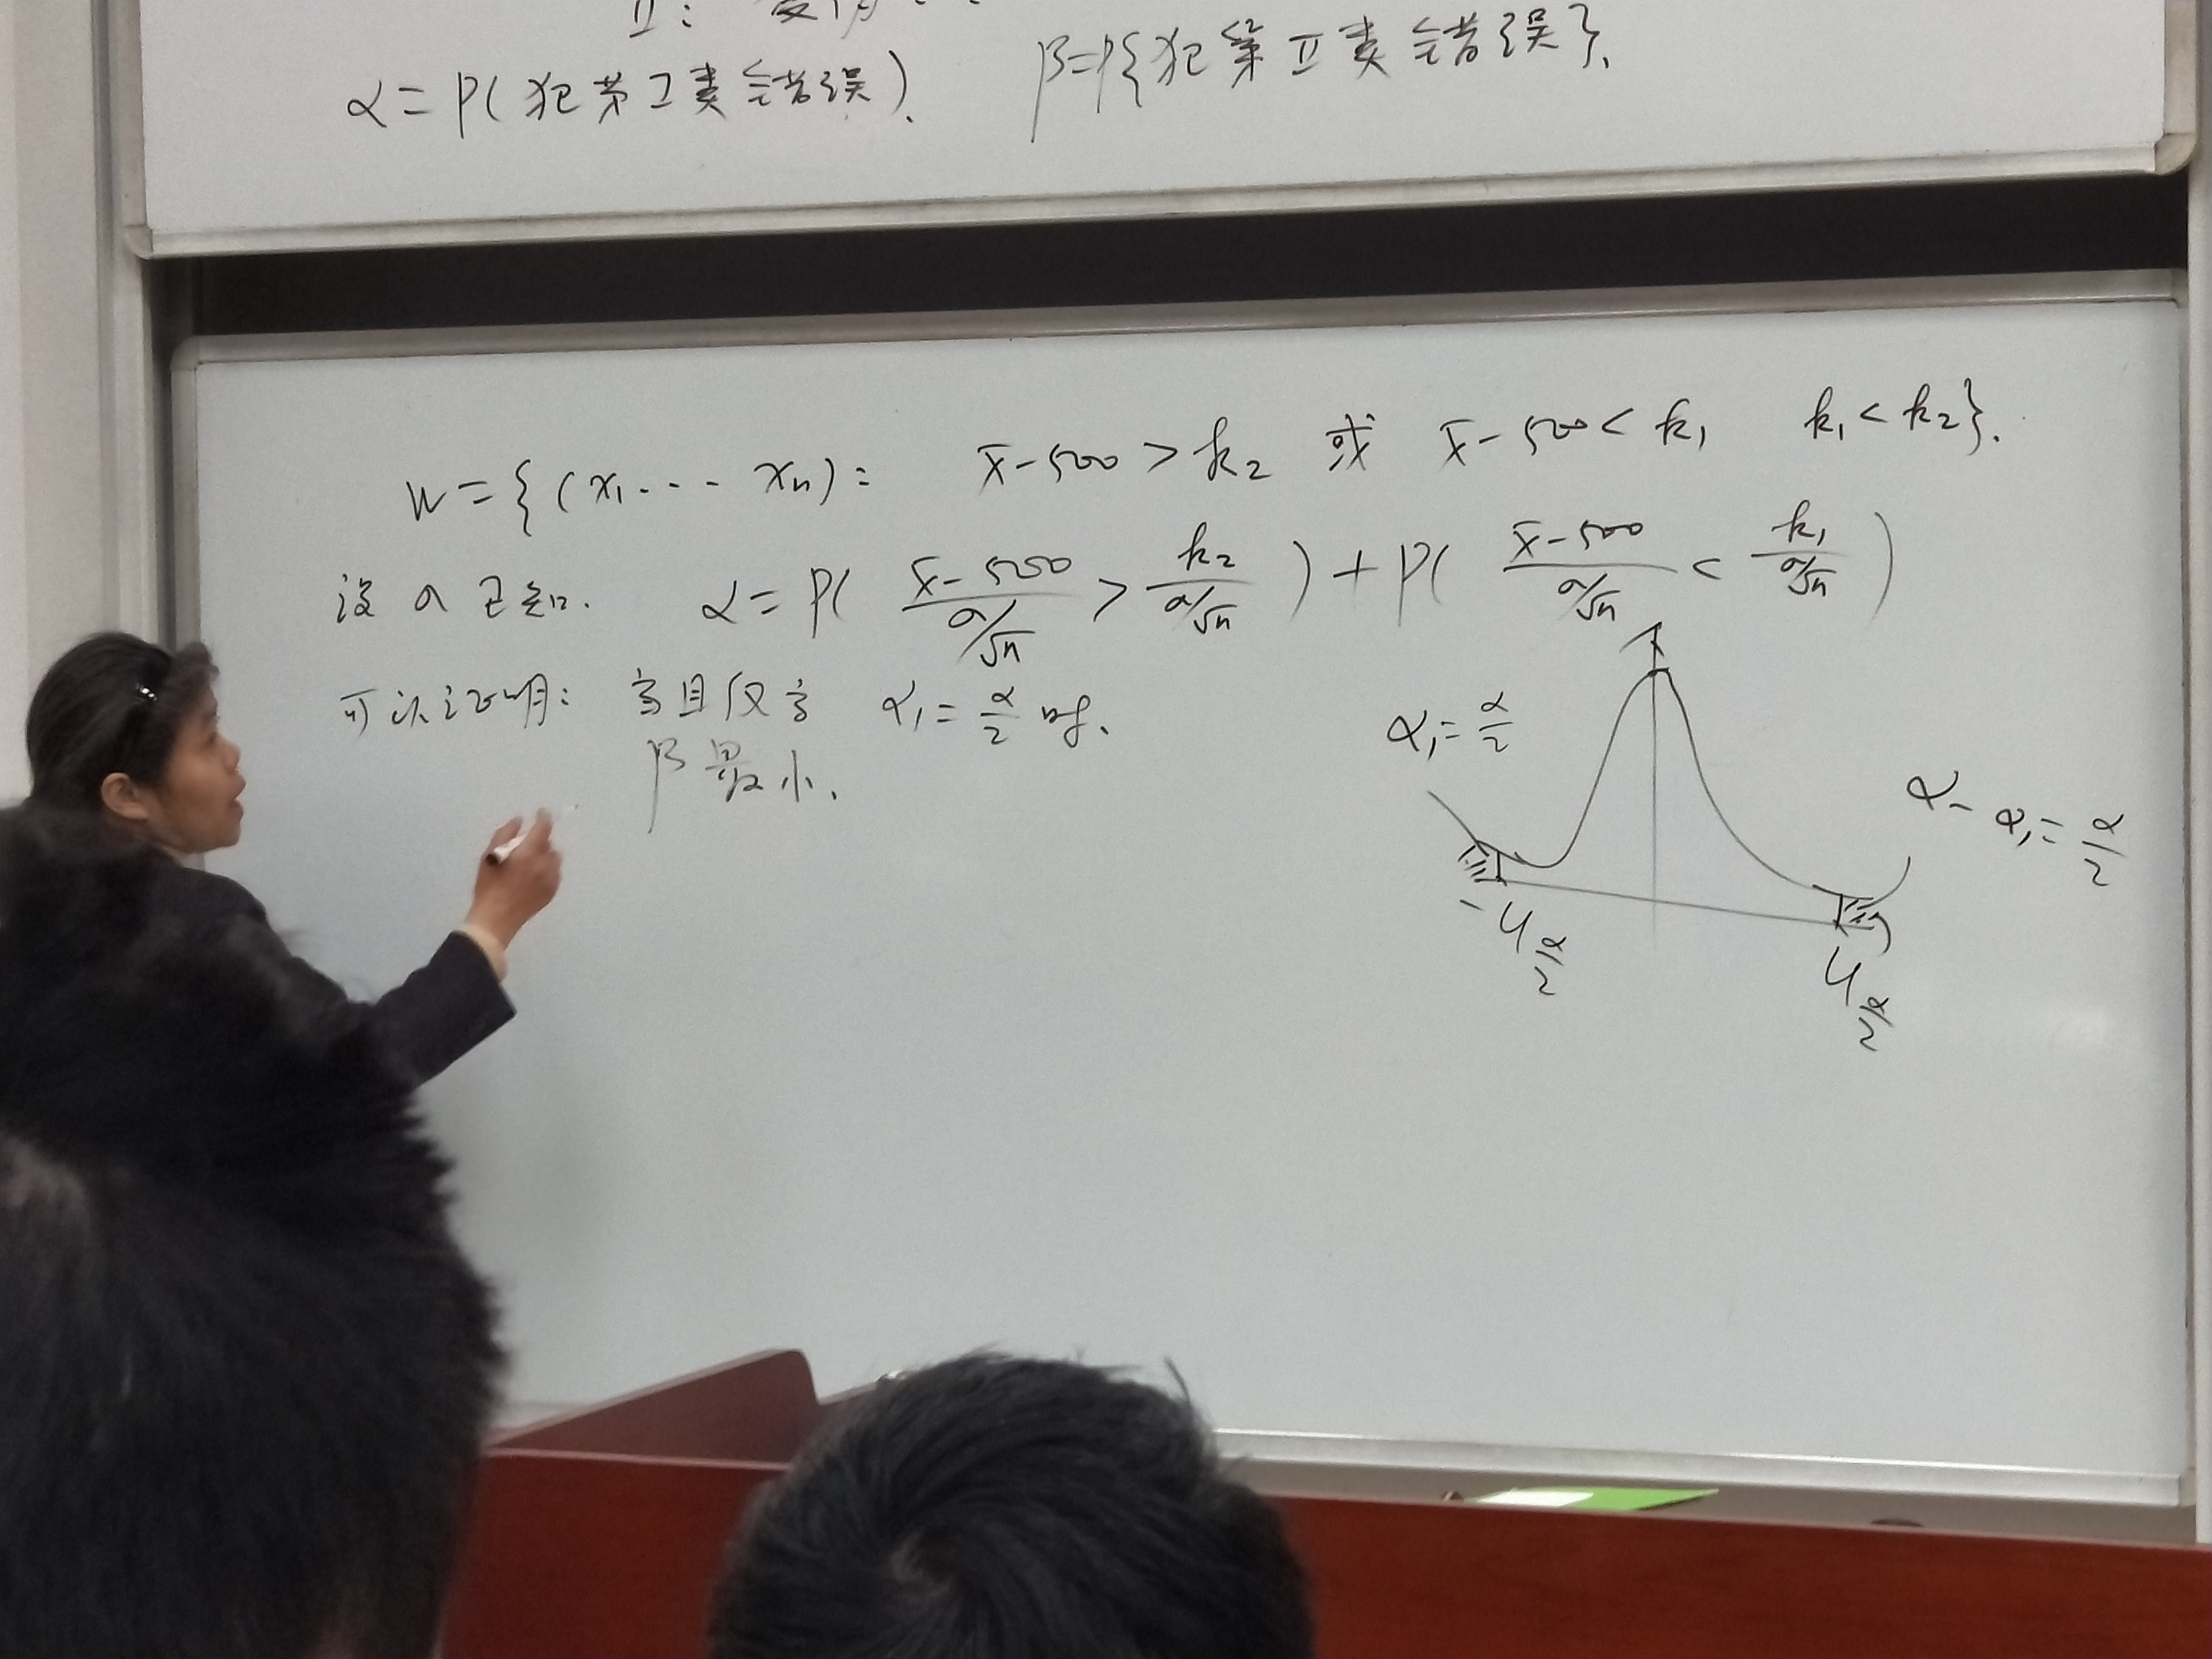 II:
α=P(犯第I类错误). β=P{犯第II类错误}.
W={(x₁--- xₙ): x̄-500>k₂ 或 x̄-500<k₁ k₁<k₂}.
设σ已知. α=P( (x̄-500)/(σ/√n) > k₂/(σ/√n) )+P( (x̄-500)/(σ/√n) < k₁/(σ/√n) )
可以证明: 当且仅当 α₁=α/2 时.
β最小.
α₁=α/2
α-α₁=α/2
-u α/2
u α/2